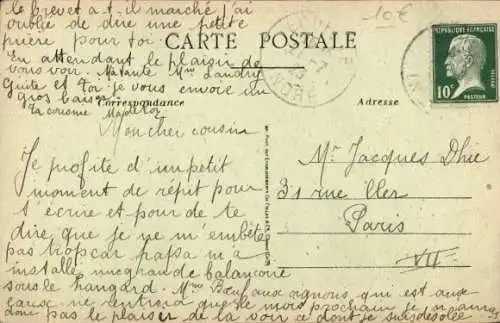 le brevet a-t-il marché j'ai
oublié de dire une petite
prière pour toi.
En attendant le plaisir de
vous voir. Ma tante Mme Landry
Guite et toi je vous envoie un
gros baiser
ta cousine
10€
CARTE POSTALE
INDRE
RÉPUBLIQUE FRANÇAISE
10c
POSTES
PASTEUR
Correspondance
Adresse
Mon cher cousin
Je profite d'un petit
moment de répit pour
t'écrire et pour de te
dire que je ne m'embête
pas trop car papa m'a
installé une grande balançoire
sous le hangard. Mme
qui est aux
eaux ne rentrera que le mois prochain je n'aurai
donc pas le plaisir de la voir ce dont je suis désolée
Mr Jacques Dhie
31 rue
Paris
VII